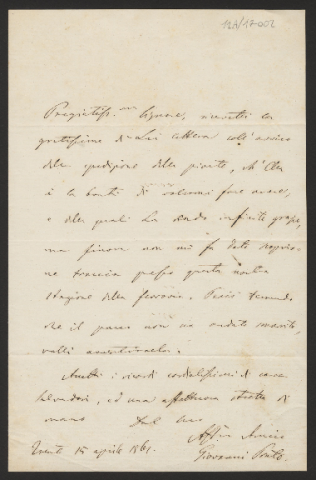 Pregiatiss.mo Signore, ricevetti la
gratissima di Lei lettera coll'avviso
della spedizione delle piante, ch'Ella
à la bontà di volermi fare avere,
e delle quali La rendo infinite grazie,
ma finora non mi fu dato
ne traccia presso questa nostra
Stazione della ferrovia. Perciò temendo
che il pacco non sia andato smarrito,
volli
Accetti i ricordi cordialissimi di casa
Salvadori, ed una affettuosa stretta di
mano dal suo
Aff.mo Amico
Trento 15 aprile 1861. Giovanni